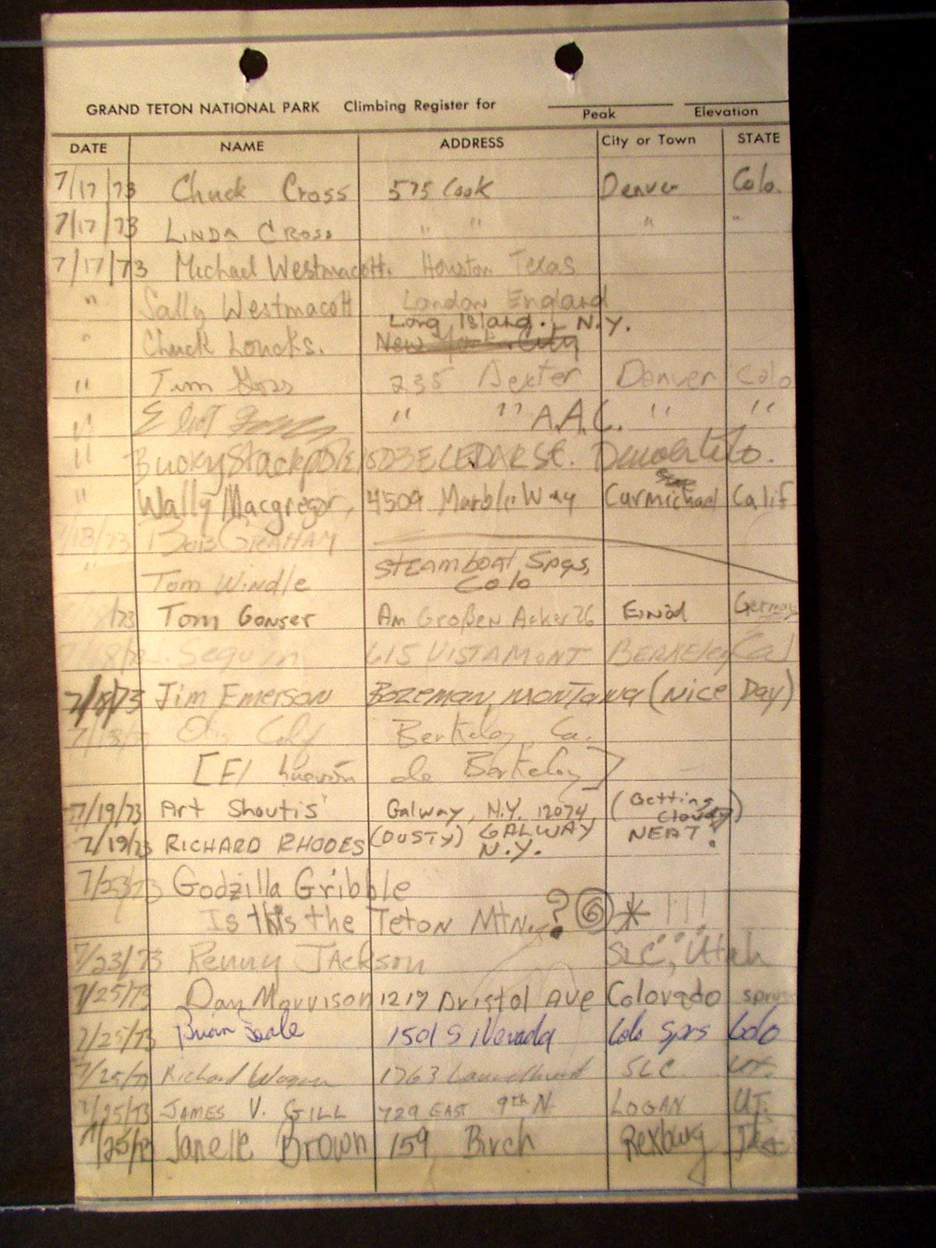 GRAND TETON NATIONAL PARK Climbing Register for
Peak Elevation
DATE NAME ADDRESS City or Town STATE
7/17/73 Chuck Cross 575 Cook Denver Colo.
7/17/73 LINDA CROSS " " " "
7/17/73 Michael Westmacott. Houston Texas
" Sally Westmacott London England
Long Island. N.Y.
" Chuck Loucks. New York City
" Tim 235 Dexter Denver Colo
" " " A.A.C. " "
" Bucky Stackpole CEDAR St.
" Wally Macgregor, 4509 Marble Way Carmichael Calif
7/18/73 BOB GRAHAM
" Tom Windle STEAMBOAT Spgs,
Colo
/73 Tom Gonser Am Großen Acker 26 Einöd Germany
Sequin 615 VISTAMONT BERKELEY Cal
7/18/73 Jim Emerson BOZEMAN, MONTANA (Nice Day)
Berkeley, Ca.
[El huevón de Berkeley]
7/19/73 Art Shoutis Galway, N.Y. 12074 (Getting
Cloudy)
7/19/73 RICHARD RHODES (DUSTY) GALWAY NEAT!
N.Y.
7/23/73 Godzilla Gribble
Is this the Teton Mtn. ? @ * !!!
7/23/73 Renny JAckson SLC, Utah
7/25/73 Dan Morrison 1217 Bristol Ave Colorado sprgs
7/25/73 Brian 1501 S Nevada Colo Sprs Colo
7/25/73 Richard 1763 SLC Ut.
7/25/73 JAMES V. GILL 729 EAST 9th N. LOGAN UT.
7/25/73 Janelle Brown 159 Birch Rexburg